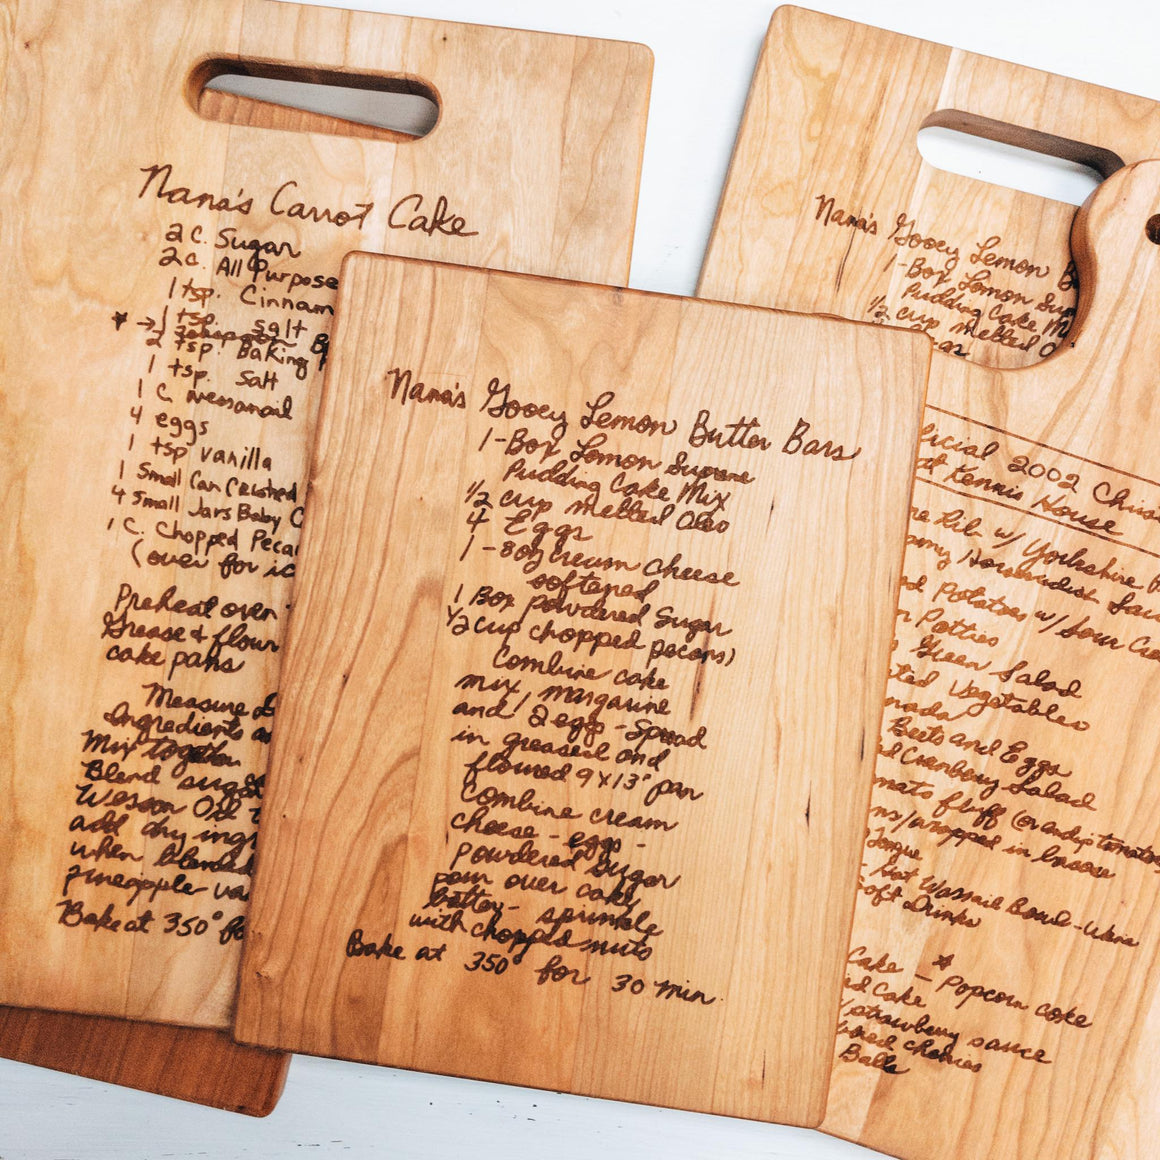 Nana's Carrot Cake
2 C. Sugar
2 C. All Purpose
1 tsp. Cinnam
1 tsp. salt
2 tsp. Baking
1 tsp. Salt
1 C.
4 eggs
1 tsp vanilla
1 Small Can Crushed
4 Small Jars Baby C
1 C. Chopped Peca
(over for ic
Preheat oven
Grease & flour
cake pans
Measure
Ingredients
Mix together
Blend sug
Wesson Oil
add dry ing
when blended
pineapple va
Bake at 350° fo
Nana's Gooey Lemon Butter Bars
1-Box Lemon Supreme
Pudding Cake Mix
1/2 cup melted Oleo
4 Eggs
1-8oz cream cheese
softened
1 Box powdered Sugar
1/2 cup chopped pecans)
Combine cake
mix, margarine
and 2 eggs - Spread
in greased and
floured 9x13" pan
Combine cream
cheese - eggs -
powdered sugar
pour over cake
batter - sprinkle
with chopped nuts
Bake at 350° for 30 min.
Nana's Gooey Lemon B
1-Box Lemon Sup
Pudding Cake Mi
1/2 cup melted O
ggs
icial 2002 Chris
at Kennis House
me Rib w/ Yorkshire P
my Horseradish Sau
d Potatoes w/ Sour Cre
n Patties
Green Salad
ted Vegetables
nada
Beets and Eggs
d Cranberry Salad
mato fluff
ms/wrapped in
Tongue
- Hot Wassail Bowl - Wine
Soft Drinks
Cake - * Popcorn cake
ed Cake
/ strawberry sauce
ered cherries
Balls